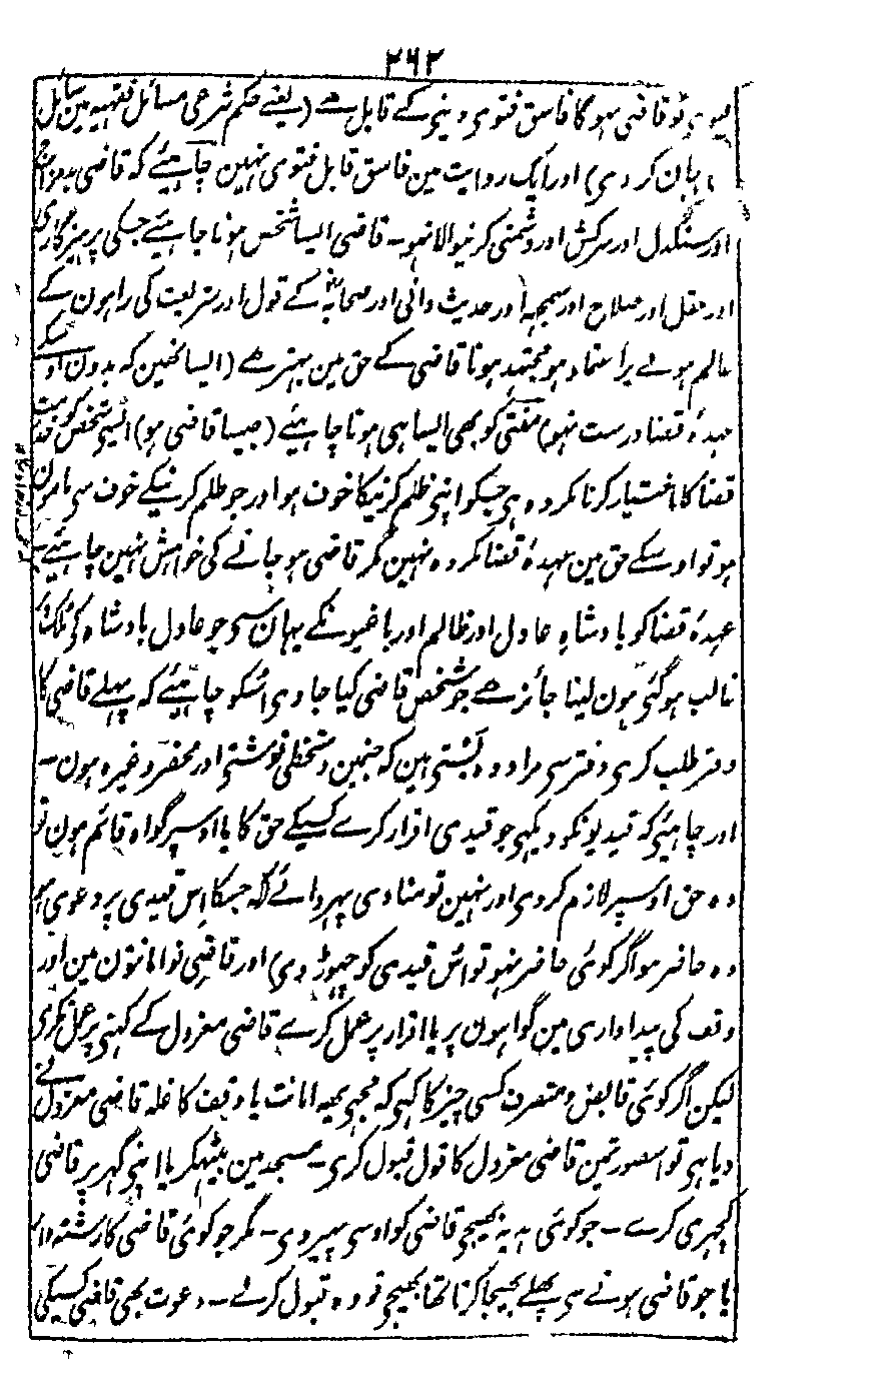 ۲۶۲
دیوی تو قاضی ہوگا فاسق فتوی دینے کے قابل ہے (یعنے حکم شرعی مسائل فقہیہ مین سائل
بیان کر دی) اور ایک روایت مین فاسق قابل فتوی نہین چاہیئے کہ قاضی بدمزاج
اور سنگدل اور سرکش اور دشمنی کرنیوالا نہو۔ قاضی ایسا شخص ہونا چاہیئے جسکی پرہیزگاری
اور عقل اور صلاح اور سمجہہ اور حدیث دانی اور صحابہؓ کے قول اور شریعت کی راہون کے
عالم ہونے پر اعتماد ہو مجتہد ہونا قاضی کے حق مین بہتر ہے (ایسا نہین کہ بدون اوسکے
عہدۂ قضا درست نہو) مفتی کو بھی ایسا ہی ہونا چاہیئے (جیسا قاضی ہو) ایسی شخص کو خدمت
قضا کا اختیار کرنا مکروہ ہی جسکو اپنی ظلم کرنیکا خوف ہو اور جو ظلم کرنیکے خوف سی مامون
ہو تو اوسکے حق مین عہدۂ قضا مکروہ نہین مگر قاضی ہو جانے کی خواہش نہین چاہیئے
عہدۂ قضا کو بادشاہ عادل اور ظالم اور باغیونکے یہان سی جو عادل بادشاہ کی ملک
غالب ہو گئی ہون لینا جائز ہے جو شخص قاضی کیا جاوی اسکو چاہیئے کہ پہلے قاضی کا
دفتر طلب کری دفتر سی مراد وہ بستی ہین کہ جنمین دستخطی نوشتی اور محضر وغیرہ ہون۔
اور چاہیئی کہ قیدیونکو دیکہی جو قیدی اقرار کرے کسیکے حق کا یا اوسپر گواہ قائم ہون تو
وہ حق اوسپر لازم کر دی اور نہین تو منادی پہروائے کہ جسکا اس قیدی پر دعوی ہو
وہ حاضر ہو اگر کوئی حاضر نہو تو اس قیدی کو چہوڑ دی) اور قاضی نو امانتون مین اور
وقف کی پیداواری مین گواہون پر یا اقرار پر عمل کرے قاضی معزول کے کہنی پر عمل نکری
لیکن اگر کوئی قابض و متصرف کسی چیز کا کہی کہ مجہی یہہ امانت یا وقف کا غلہ قاضی معزول نے
دیا ہی تو اسصورتمین قاضی معزول کا قول قبول کری۔ مسجد مین بیٹہکر یا اپنی گہر پر قاضی
کچہری کرے۔ جو کوئی ہدیہ بہیجی قاضی کو اوسی پہیر دی۔ مگر جو کوئی قاضی کا رشتہ دار
یا جو قاضی ہونے سی پہلے بہیجا کرتا تہا بہیجی تو وہ قبول کرلے۔ دعوت بھی قاضی کسیکی